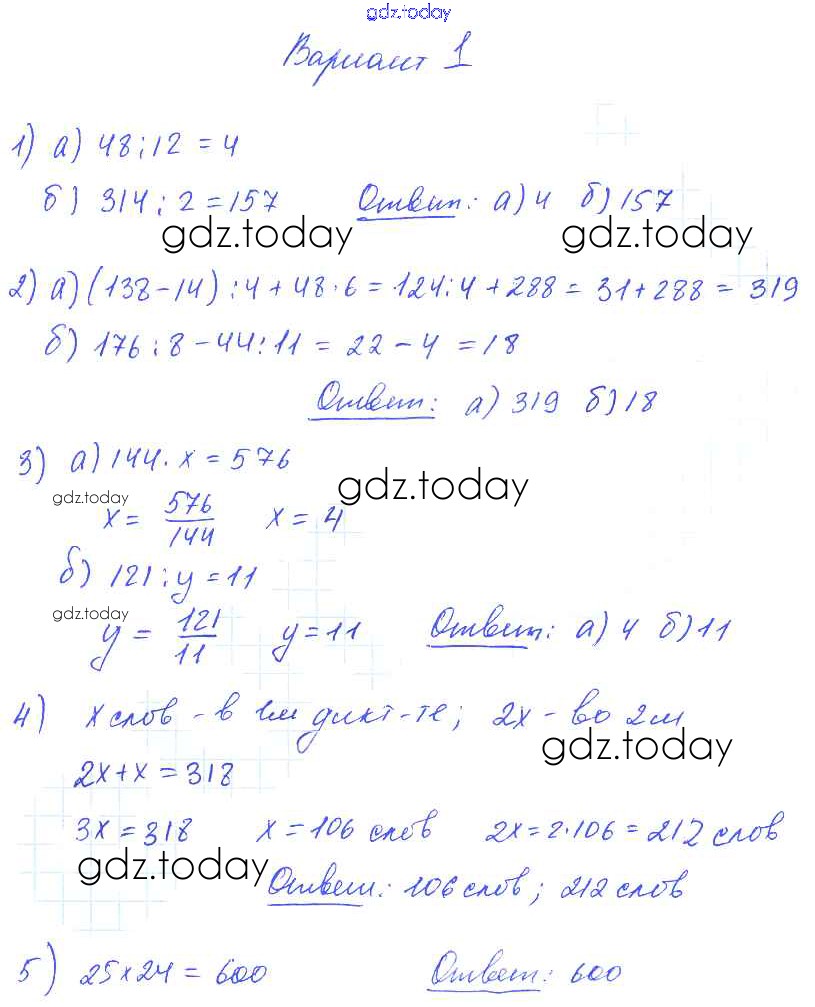 gdz.today
Вариант 1
1) а) 48:12 = 4
б) 314:2=157 Ответ: а) 4 б) 157
gdz.today gdz.today
2) а) (138-14):4+48·6=124:4+288=31+288=319
б) 176:8-44:11=22-4=18
Ответ: а) 319 б) 18
3) а) 144·x=576
gdz.today gdz.today
x = 576/144 x = 4
б) 121:y=11
gdz.today
y = 121/11 y=11 Ответ: а) 4 б) 11
4) x слов - в 1м дикт-те; 2x - во 2м
gdz.today
2x+x=318
3x=318 x=106 слов 2x=2·106=212 слов
gdz.today
Ответ: 106 слов; 212 слов
5) 25×24=600 Ответ: 600